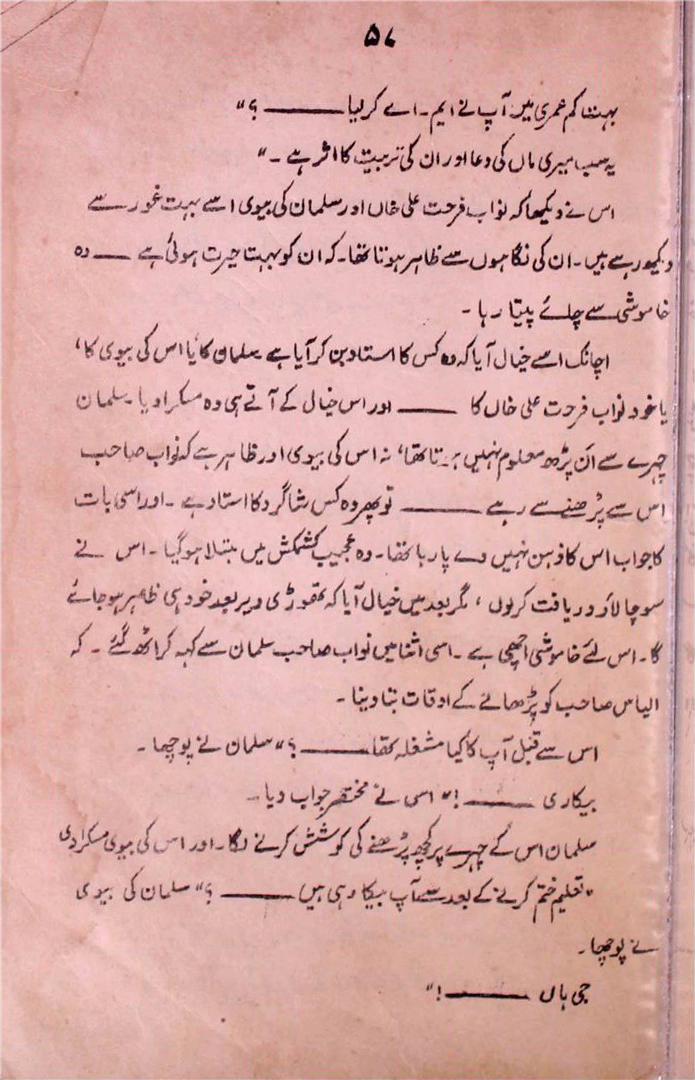 ۵۷
بہت کم عمری میں آپ نے ایم۔ اے کر لیا ——— ؟"
یہ سب میری ماں کی دعا اور ان کی تربیت کا اثر ہے ۔"
اس نے دیکھا کہ نواب فرحت علی خاں اور سلمان کی بیوی اسے بہت غور سے
دیکھ رہے ہیں۔ ان کی نگاہوں سے ظاہر ہوتا تھا۔ کہ ان کو بہت حیرت ہوئی ہے —— وہ
خاموشی سے چائے پیتا رہا ۔
اچانک اسے خیال آیا کہ وہ کس کا استاد بن کر آیا ہے سلمان کا یا اس کی بیوی کا،
یا خود نواب فرحت علی خاں کا ——— اور اس خیال کے آتے ہی وہ مسکرا دیا ۔ سلمان
چہرے سے ان پڑھ معلوم نہیں ہوتا تھا، نہ اس کی بیوی اور ظاہر ہے کہ نواب صاحب
اس سے پڑھنے سے رہے ——— تو پھر وہ کس شاگرد کا استاد ہے ۔ اور اسی بات
کا جواب اس کا ذہن نہیں دے پا رہا تھا۔ وہ عجیب کشمکش میں مبتلا ہو گیا ۔ اس نے
سوچا لاؤ دریافت کر لوں ، مگر بعد میں خیال آیا کہ تھوڑی دیر بعد خود ہی ظاہر ہو جائے
گا۔ اس لئے خاموشی اچھی ہے ۔ اسی اثنا میں نواب صاحب سلمان سے کہہ کر اٹھ گئے ۔ کہ
الیاس صاحب کو پڑھانے کے اوقات بتا دینا ۔
اس سے قبل آپ کا کیا مشغلہ تھا ——— ؟" سلمان نے پوچھا ۔
بیکاری ——— !" اسی نے مختصر جواب دیا ۔
سلمان اس کے چہرے پر کچھ پڑھنے کی کوشش کرنے لگا۔ اور اس کی بیوی مسکرا دی
"تعلیم ختم کرنے کے بعد سے آپ بیکار ہی ہیں ——— ؟" سلمان کی بیوی
نے پوچھا ۔
جی ہاں ——— !"